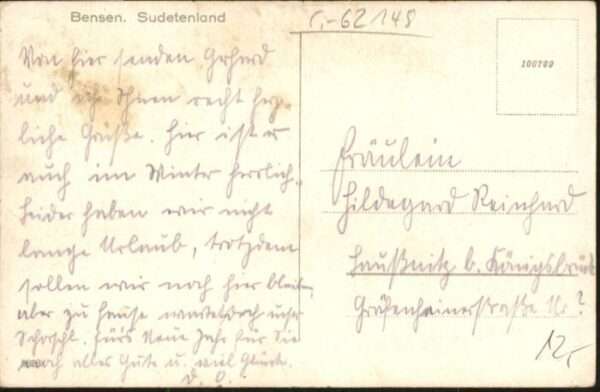 Bensen. Sudetenland
r.-62148
100789
Von hier senden Gerhard
und ich Ihnen recht herz-
liche Grüße. Hier ist es
auch im Winter herrlich.
Leider haben wir nicht
lange Urlaub, trotzdem
sollen wir noch hier bleiben,
aber zu Hause
Fürs Neue Jahr für Sie
noch alles Gute u. viel Glück.
D. O.
Fräulein
Hildegard Reinhard
Laußnitz b. Königsbrück
Gräfenheinerstraße Nr ?
12,-